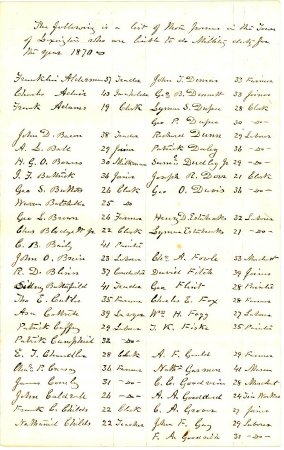 The following is a list of those persons in the Town
of Lexington who are liable to do Military duty for
the year 1870
Franklin Alderman 37 Teacher John T. Demar 33 Farmer
Charles Adair 43 Geo B. Dennett 33 Joiner
Frank Adams 19 Clerk Lyman S. Dupee 28 Clerk
Geo P. Dupee 30 -do-
John D. Bacon 38 Teacher Richard Dunn 29 Laborer
A. L. Ball 29 Joiner Patrick Daley 36 -do-
H. G. O. Bears 30 Milkman Saml Dudley Jr 29 -do-
J. F. Buttrick 36 Joiner Joseph R. Dow 21 Clerk
Geo S. Butters 26 Clerk Geo O. Davis 36 -do-
Warren Batchelder 25 -do-
Geo L. Brown 26 Farmer Henry D. Estabrooks 32 Laborer
Chas Blodgett Jr 22 Clerk Lyman Estabrooks 21 -do-
C. B. Baily 41 Painter
John O. Brien 23 Laborer Chs A. Fowle 33 Machst
R. D. Blinn 37 Conductor David Fitch 39 Joiner
Sidney Butterfield 41 Teacher Geo Flint 28 Painter
Tho E. Cutler 35 Farmer Charles E. Fox 28 Farmer
Asa Cottrell 39 Lawyer Wm H. Fogg 27 Laborer
Patrick Coffey 29 Laborer T. K. Fiske 35 Painter
Patrick Campbell 32 -do-
E. T. Chandler 28 Clerk A. F. Gould 29 Farmer
34 Farmer Nath Garmon 41 Mason
James Conly 31 -do- C. C. Goodwin 28 Machst
John Caldwell 26 -do- A. A. Goddard 24
Frank C. Childs 22 Clerk C. A. Grover 27 Joiner
Nathaniel Childs 22 Teacher John F. Gay 29 Laborer
F. A. Goodwin 31 -do-